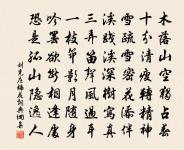 木落山空獨占春
十分清瘦轉精神
雪疎雪密花添伴
溪淺溪深樹寫真
三弄笛聲風過耳
一枝筇影月隨身
吟欲斷相逢處
恐是孤山隱逸人